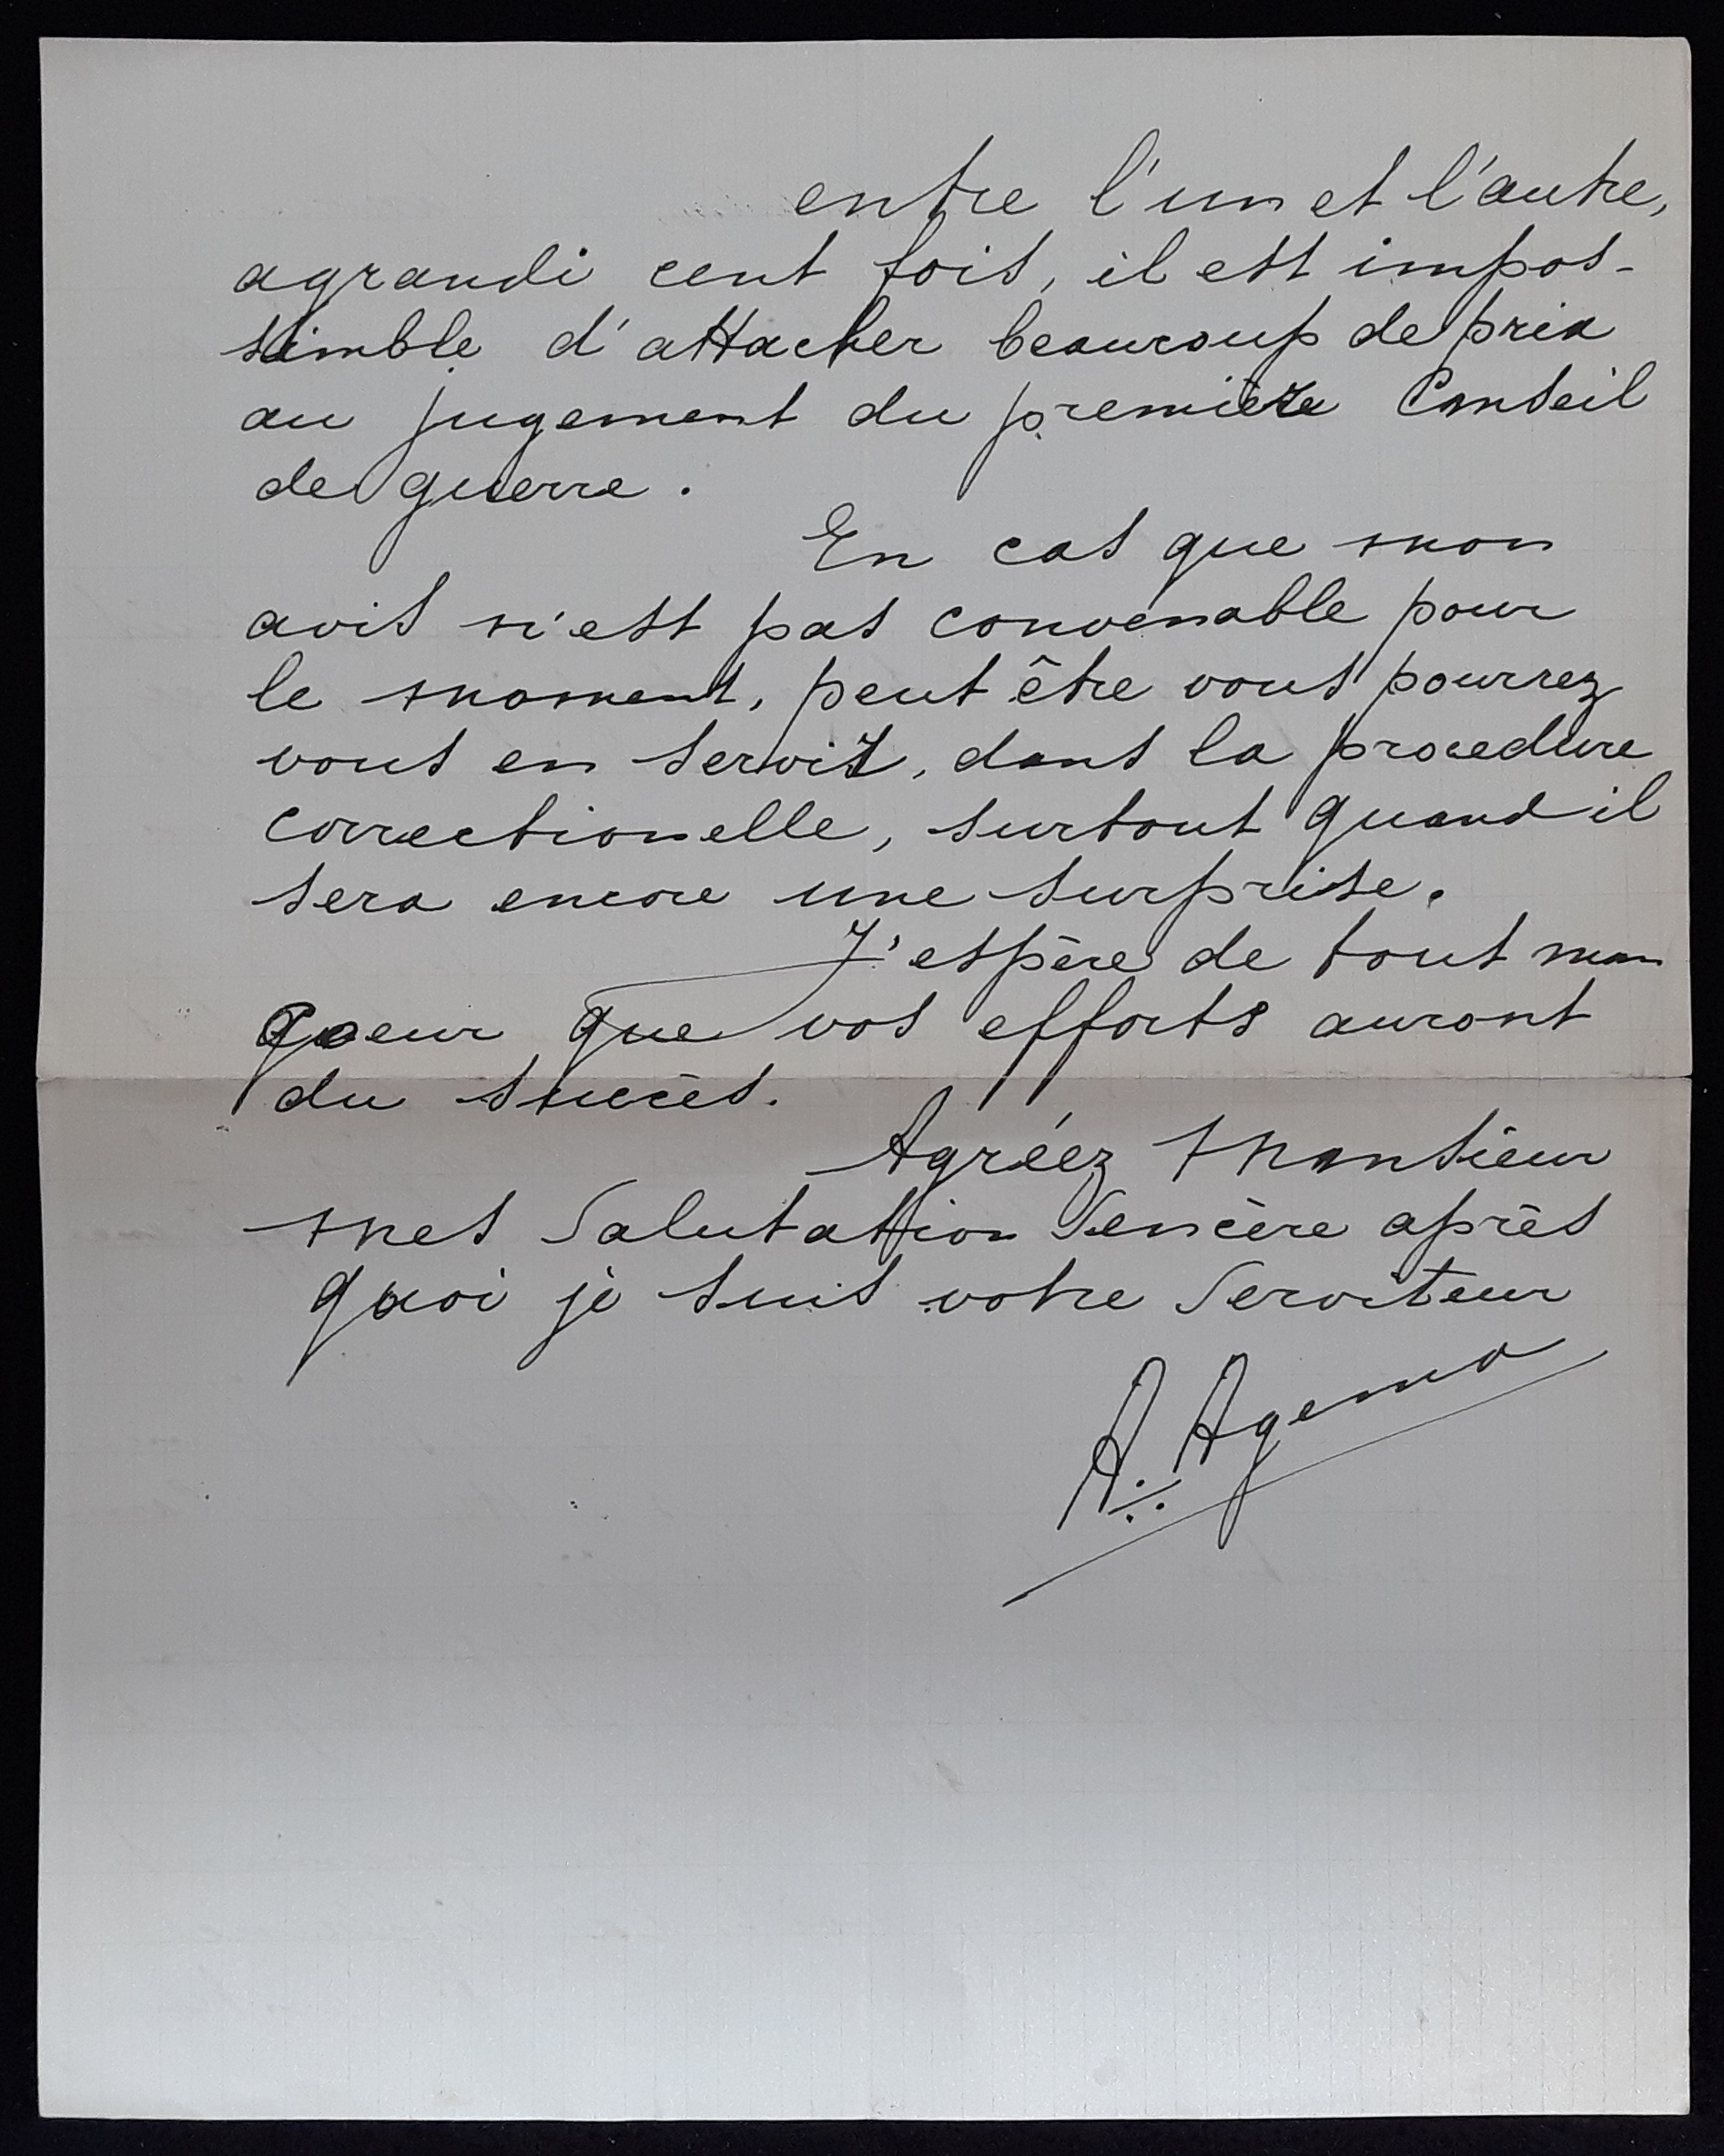 entre l'un et l'autre,
agrandi cent fois, il est impos-
simble d'attacher beaucoup de prix
au jugement du première Conseil
de guerre.
En cas que mon
avis n'est pas convenable pour
le moment, peut être vous pourrez
vous en servir, dans la procedure
correctionelle, surtout quand il
sera encore une surprise.
J'espère de tout mon
coeur que vos efforts auront
du succès.
Agréez Monsieur
mes Salutation Sencère après
quoi je suis votre Serviteur
A. Agema